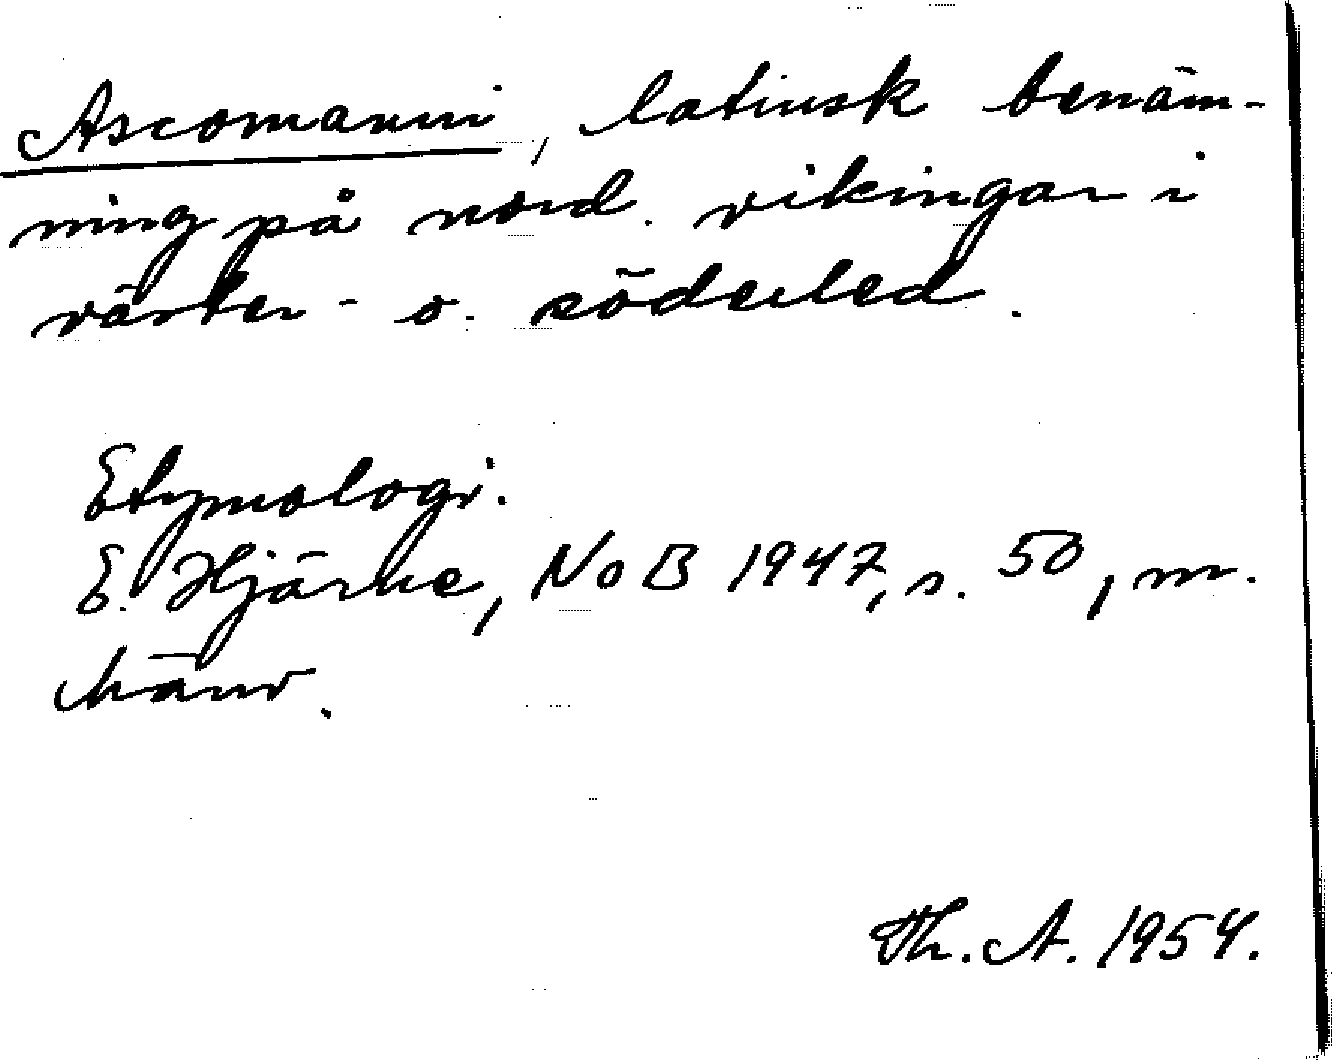 Ascomanni, latinsk benäm-
ning på nord. vikingar i
väster- o. söderled.
Etymologi.
E. Hjärne, NoB 1947, s. 50, m.
hänv.
Th. A. 1954.